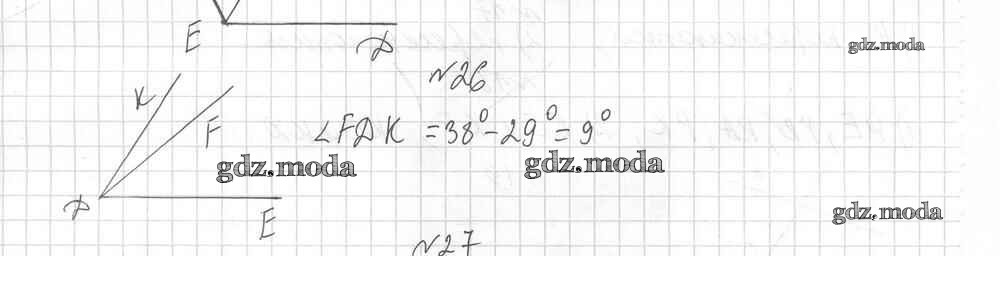 E
D
gdz.moda
№26
K
F
∠FDK = 38° - 29° = 9°
gdz.moda
gdz.moda
D
E
gdz.moda
№27